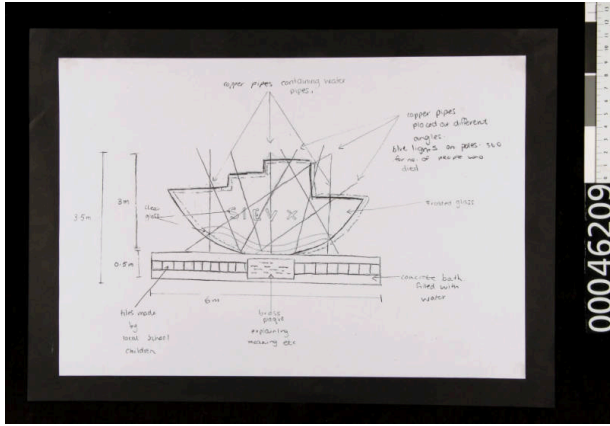 copper pipes containing water
pipes.
copper pipes
placed at different
angles.
blue lights on poles. 350
for no. of people who
died
3.5m
3m
clear
glass
SIEV X
frosted glass
0.5m
concrete bath
filled with
water
6m
tiles made
by
local school
children
brass
plaque
explaining
meaning etc
00046209